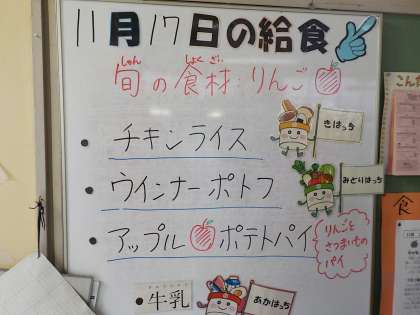 11月17日の給食
しゅん しょくざい
旬の食材:りんご
・チキンライス
きはっち
・ウインナーポトフ
みどりはっち
・アップルポテトパイ
りんごと
さつまいもの
パイ
・牛乳
あかはっち
こんだ
食